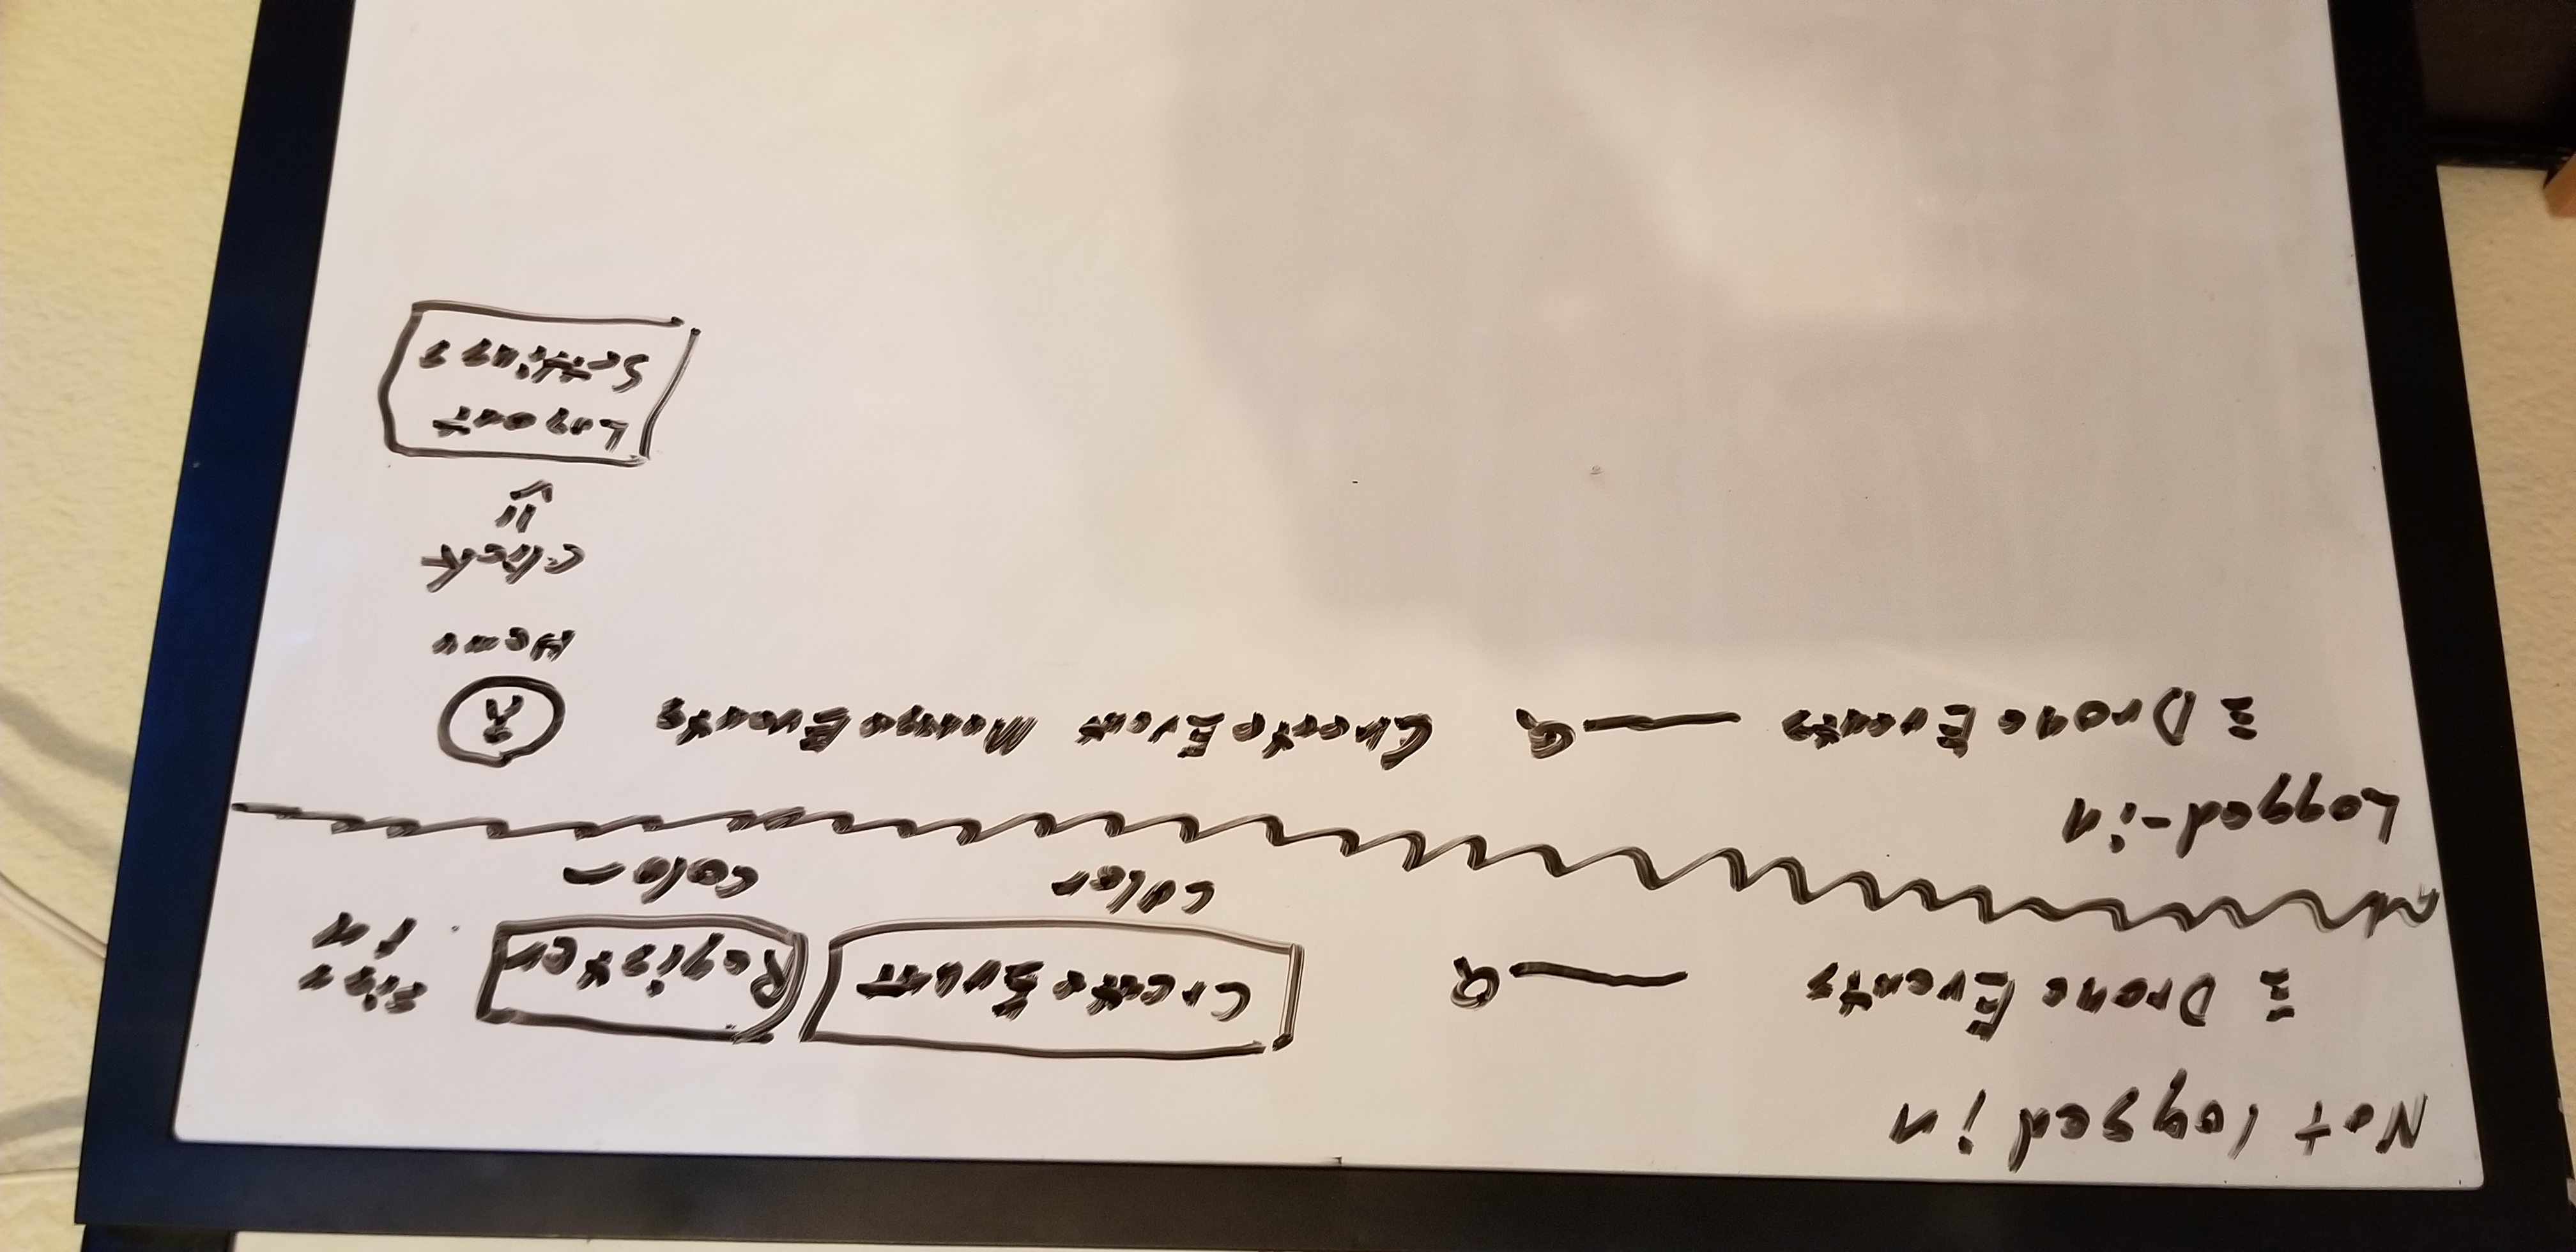 Not logged in
Drone Events Create Event Register Sign in
color color
Logged-in
Drone Events Create Event Manage Events
click
Logout
Settings